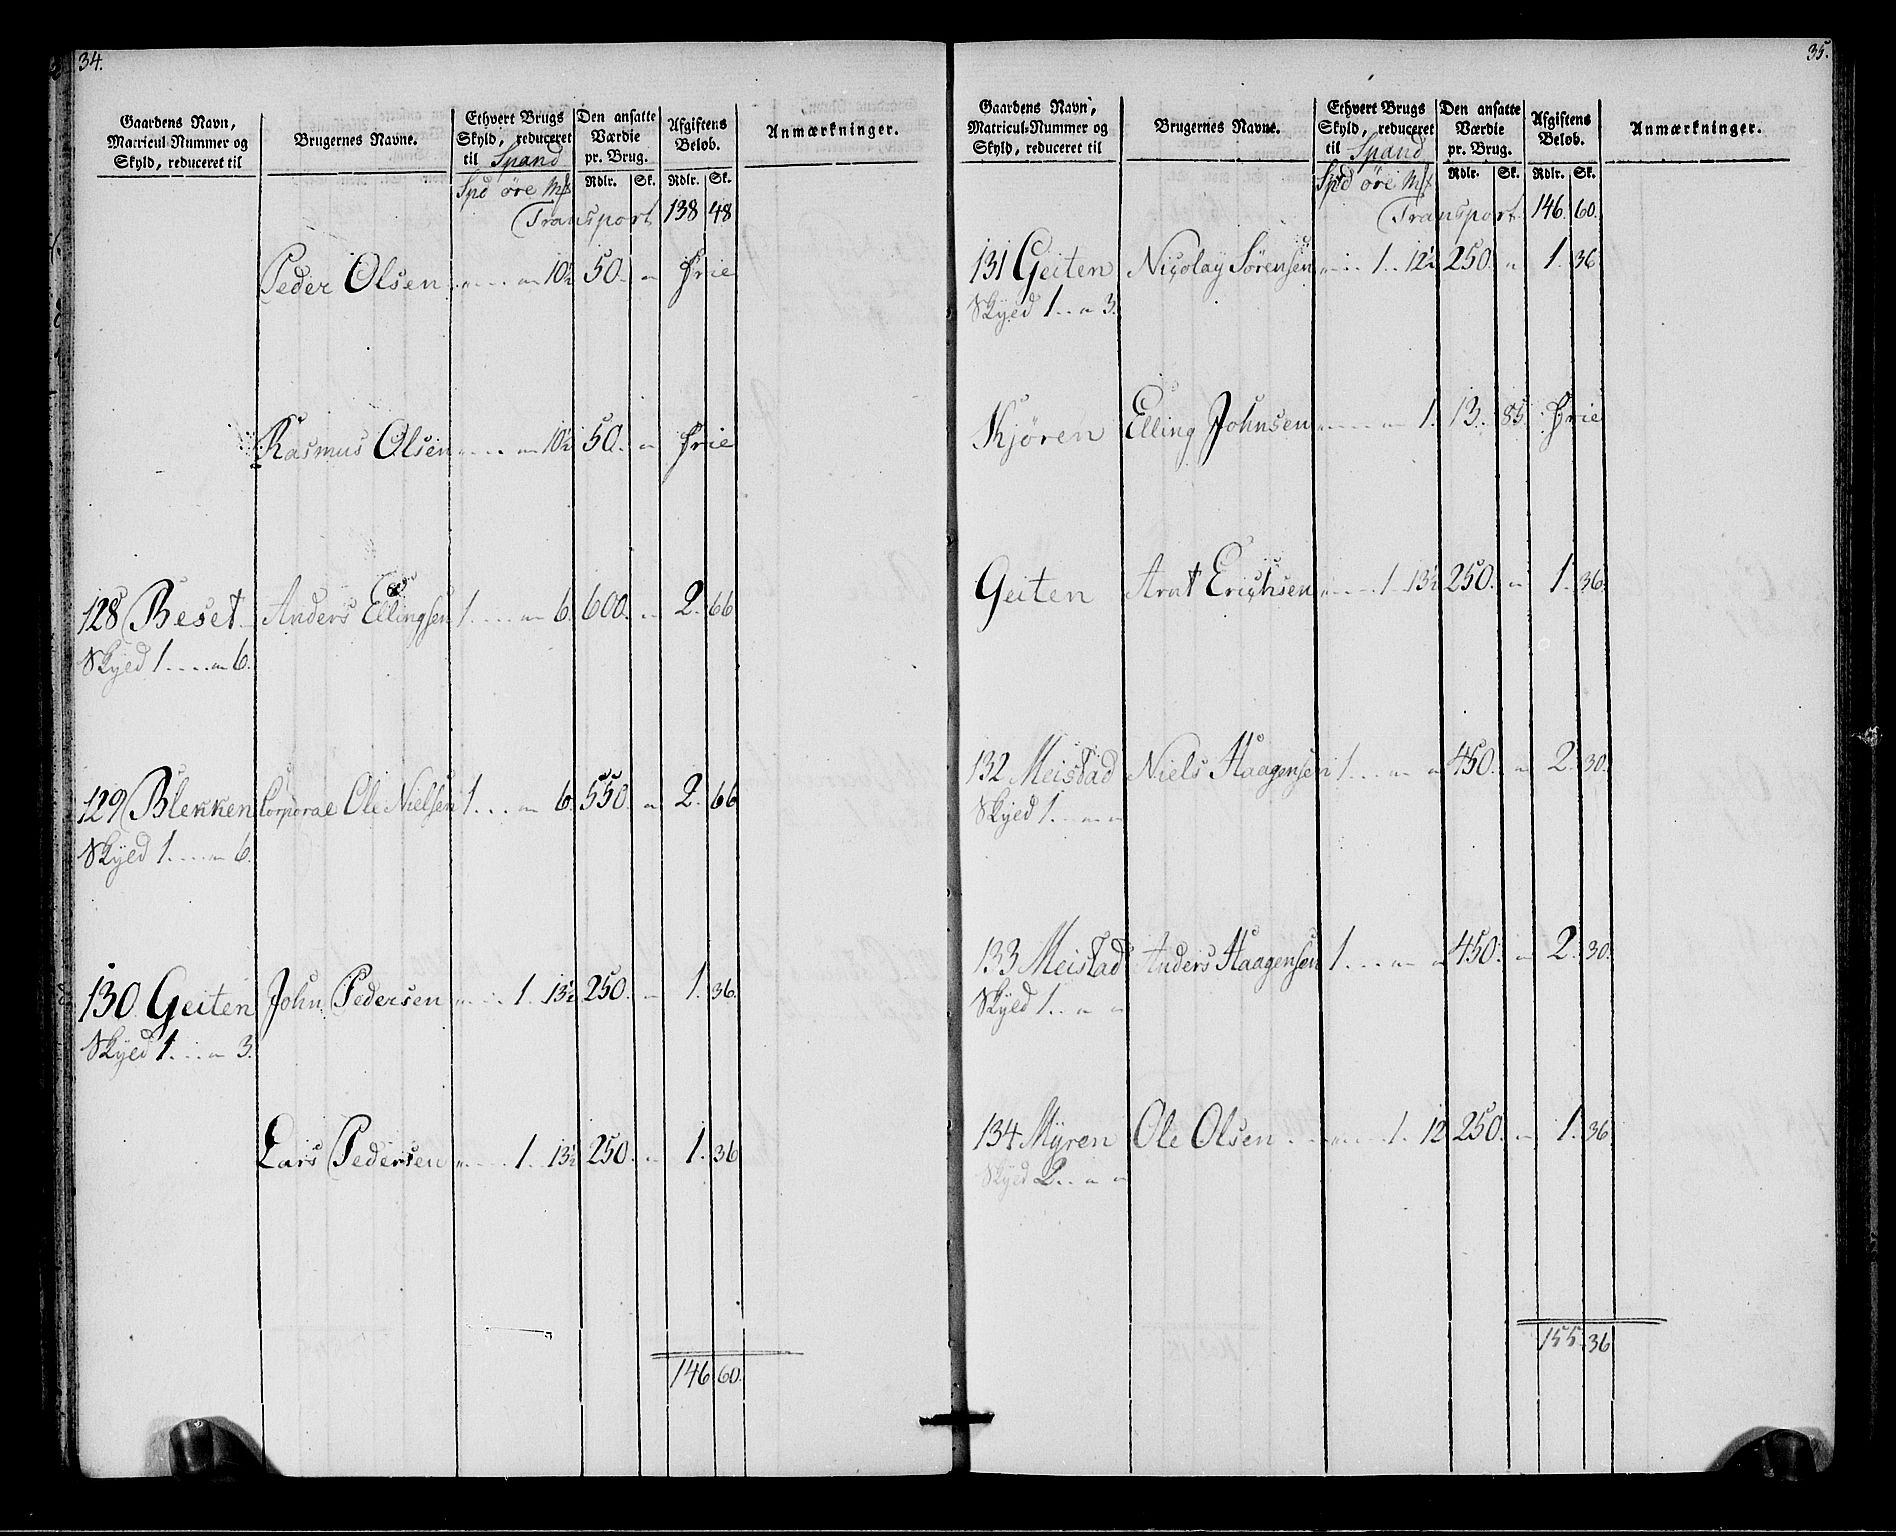 34.
Gaardens Navn,
Matricul-Nummer og
Skyld, reduceret til
Brugernes Navne.
Ethvert Brugs
Skyld, reduceret
til Spand
Den ansatte
Værdie
pr. Brug.
Afgiftens
Beløb.
Anmærkninger.
Spd øre M
Rdlr. Sk. Rdlr. Sk.
Transport 138 48
Peder Olsen 10½ 50. " frie
Rasmus Olsen 10½ 50. " frie
128 Beset Anders Ellingsen 1 . . . " 6. 600. " 2. 66
Skyld 1 . . . " 6.
129 Blekken Corporal Ole Nielsen 1 . . . " 6. 550. " 2. 66
Skyld 1 . . . " 6.
130 Geiten John Pedersen " . . 1. 13½ 250. " 1. 36.
Skyld 1 . . " 3.
Lars Pedersen " . . 1. 13½ 250. " 1. 36
146 60.
35.
Gaardens Navn,
Matricul-Nummer og
Skyld, reduceret til
Brugernes Navne.
Ethvert Brugs
Skyld, reduceret
til Spand
Den ansatte
Værdie
pr. Brug.
Afgiftens
Beløb.
Anmærkninger.
Spd øre M
Rdlr. Sk. Rdlr. Sk.
Transport 146. 60.
131 Geiten Nicolay Sörensen " . . 1 . . 12½ 250. " 1. 36
Skyld 1 . . " 3.
Kjøren Elling Johnsen " . . . " 1. 13. 85. frie
Geiten Arnt Erichsen " . . . 1 13½ 250. " 1. 36.
132 Meistad Niels Haagensen 1 . . . " " 450. " 2. 30.
Skyld 1 . . " "
133 Meistad Anders Haagensen 1 . . . " " 450. " 2. 30.
Skyld 1 . . " "
134 Myren Ole Olsen . . . 1. 12 250. " 1. 36.
Skyld 2 . . " "
155. 36